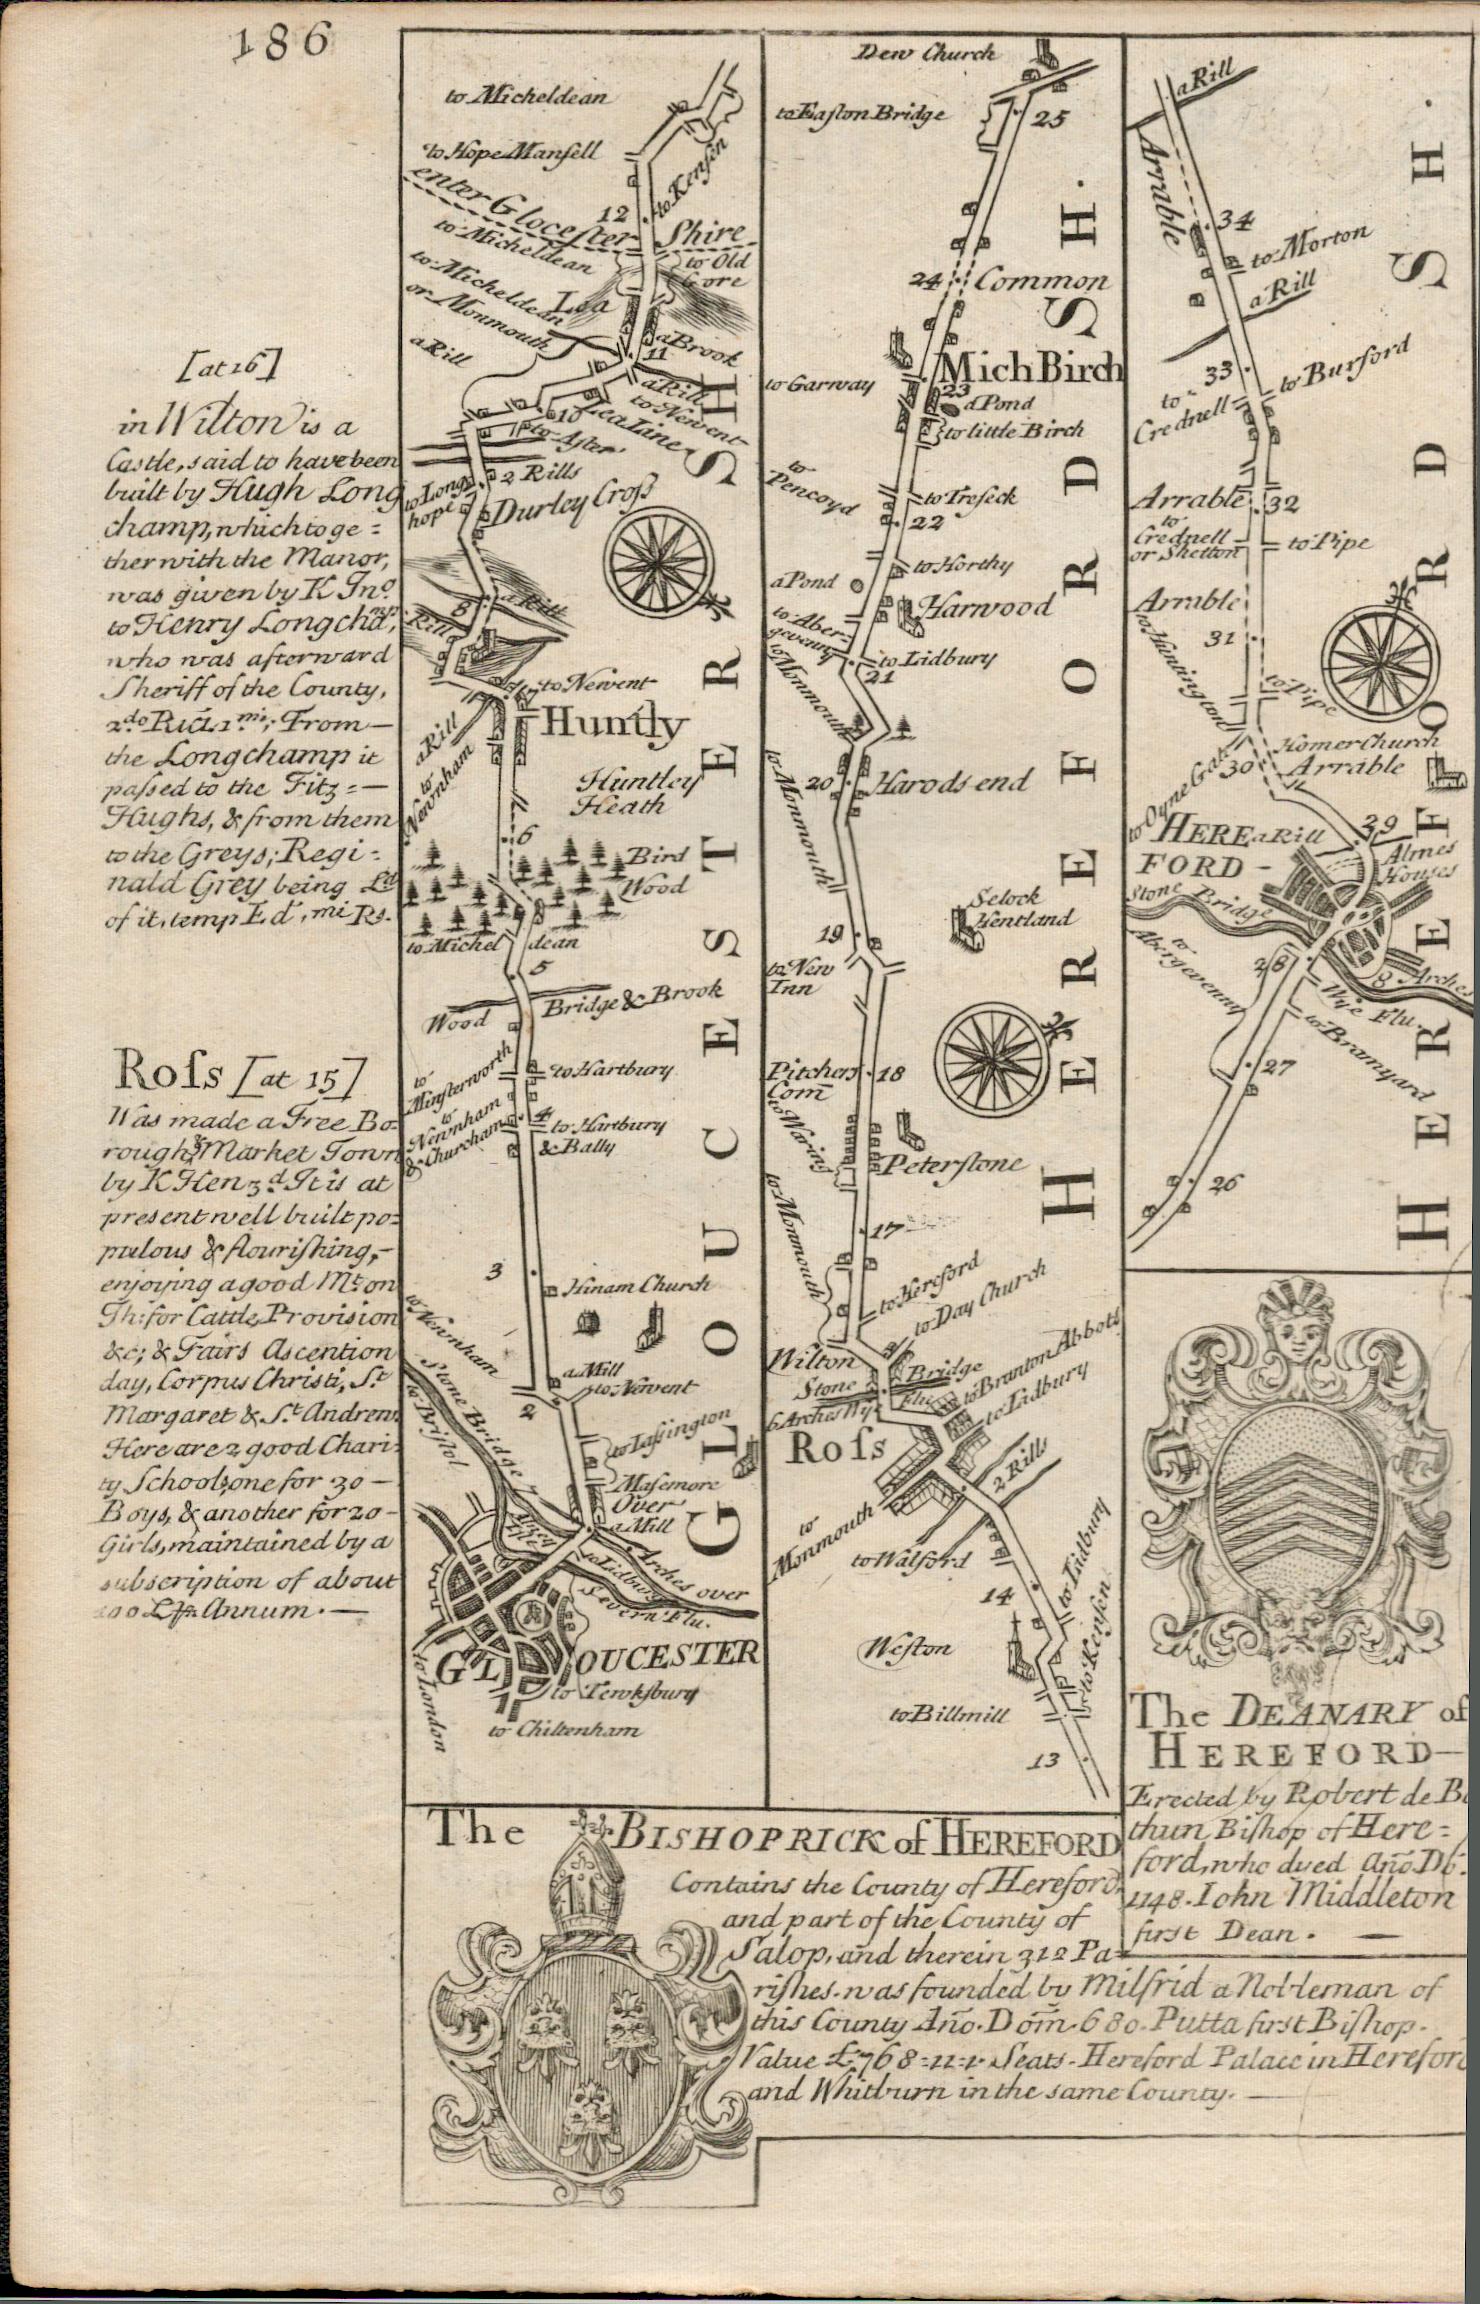 186
[at 16]
in Wilton is a
Castle, said to have been
built by Hugh Long
champ, which toge=
ther with the Manor,
was given by K Jno.
to Henry Longchamp,
who was afterward
Sheriff of the County,
2do. Ric. 1mi; From—
the Longchamp it
paſsed to the Fitz=—
Hughs, & from them
to the Greys; Regi=
nald Grey being Ld
of it, temp Ed. mi Rs.
Roſs [at 15]
Was made a Free Bo-
rough & Market Town
by K Hen 3d. It is at
present well built po=
pulous & flouriſhing,-
enjoying a good Mt. on
Th: for Cattle, Provision
&c; & Fairs Ascention
day, Corpus Chriſti, St.
Margaret & St. Andrew.
Here are 2 good Chari=
ty Schools, one for 30—
Boys, & another for 20-
Girls, maintained by a
subscription of about
100 L. p Annum.—
to Micheldean
to Hope Manſell
to Kenſin
enter Gloceſter Shire
12
to Micheldean
to Old
Gore
to Micheldean
or Monmouth
Lea
a Brook
11
a Rill
a Rill
to Newent
Lea Line
10
to Aſter
2 Rills
to Long
hope
Durley Croſs
8
a Rill
Rill
7
to Newent
Huntly
a Rill
to
Newnham
Huntley
Heath
6
Bird
Wood
to Michel dean
5
Bridge & Brook
Wood
to
Minſterworth
to Hartbury
to
Newnham
& Churcham
4
to Hartbury
& Bally
3
Hinam Church
to Newnham
a Mill
to Newent
2
Stone Bridge
to Briſtol
to Laſsington
Maſemore
Over
a Mill
Arches over
to Lidbury
Severn Flu.
GLOUCESTER
to Tewksbury
to London
to Chiltenham
GLOUCESTERSH
Dew Church
to Eaſton Bridge
25
24
Common
Mich Birch
to Garway
23
a Pond
to little Birch
to
Pencoyd
to Treſeck
22
to Horthy
a Pond
Harwood
to Aber-
gevenny
to Lidbury
21
to Monmouth
20
Harods end
to Monmouth
Selock
Hentland
19
to New
Inn
Pitchers
Com̄
18
to Waring
Peterſtone
to Monmouth
17
to Hereford
to Day Church
Wilton
Stone Bridge
6 Arches Wye Flu
to Branton Abbots
to Lidbury
Roſs
2 Rills
to
Monmouth
to Walford
to Lidbury
14
to Kenſen
Weſton
to Billmill
13
HEREFORDSH.
a Rill
Arrable
34
to Morton
a Rill
33
to Burford
to
Crednell
Arrable
32
to
Crednell
or Shetton
to Pipe
Arrable
31
to Huntington
to Pipe
Homer Church
30
Arrable
to Oyne Gate
29
HERE
FORD-
a Rill
Almes
Houses
Stone Bridge
8 Arches
to
Abergevenny
28
Wye Flu.
to Bramyard
27
26
HEREFORDSH.
The DEANARY of
HEREFORD—
Erected by Robert de Be
thun Biſhop of Here=
ford, who dyed Año. Do.
1148. Iohn Middleton
first Dean. —
The BISHOPRICK of HEREFORD
Contains the County of Hereford,
and part of the County of
Salop, and therein 312 Pa=
riſhes. was founded by Milfrid a Nobleman of
this County Año. Dom̄. 680. Putta first Biſhop.
Value £768=11=1 Seats. Hereford Palace in Hereford
and Whitburn in the same County. —